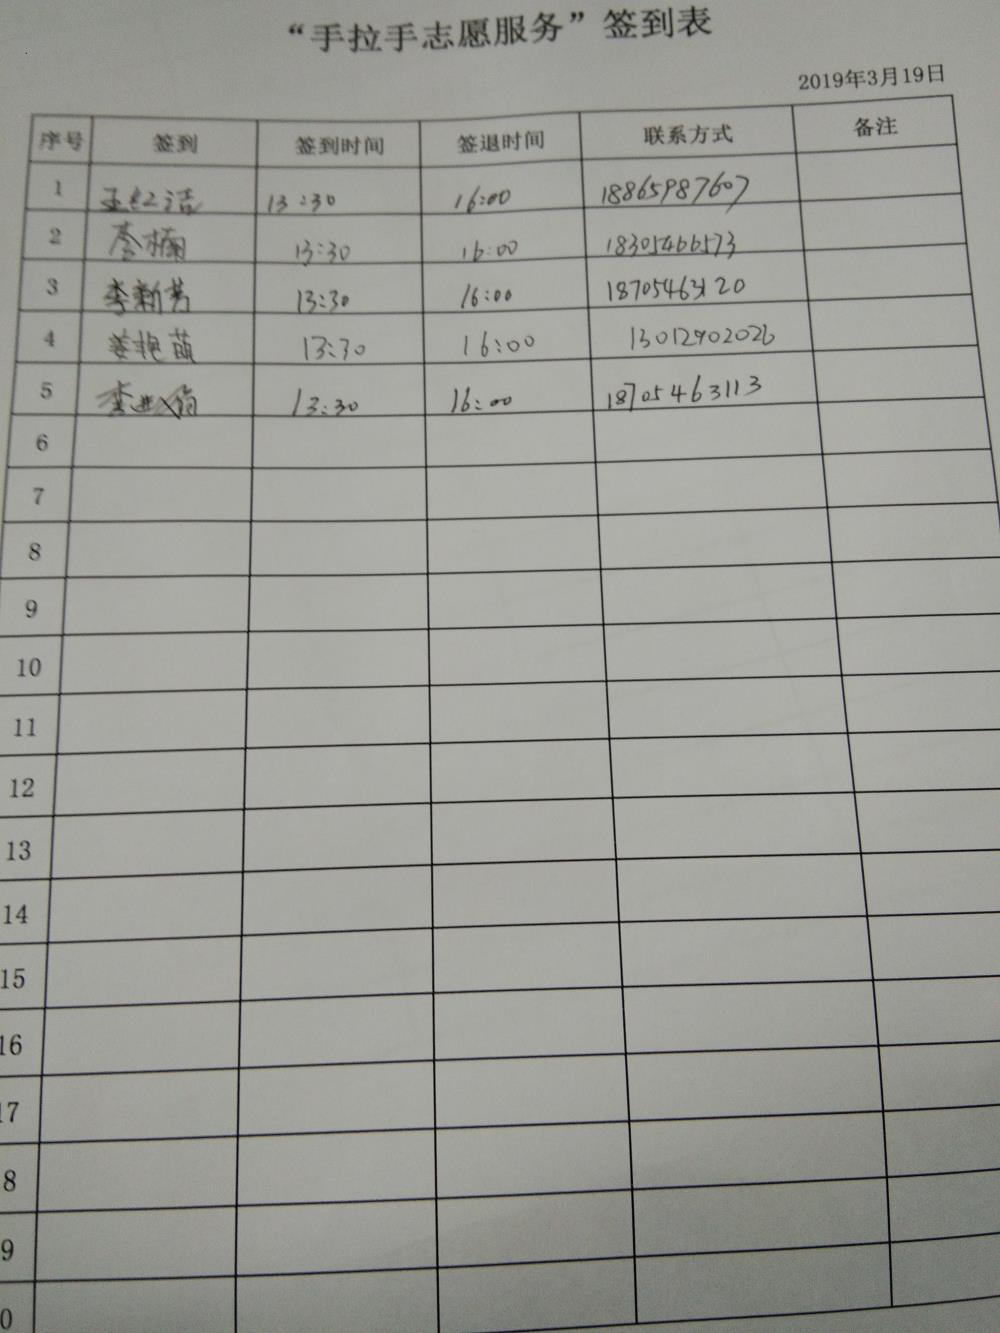 “手拉手志愿服务”签到表
2019年3月19日
序号 签到 签到时间 签退时间 联系方式 备注
1 王红洁 13:30 16:00 18865987607
2 李楠 13:30 16:00 18305466573
3 李新芳 13:30 16:00 18705463120
4 姜艳萌 13:30 16:00 13012902026
5 李 13:30 16:00 18705463113
6
7
8
9
10
11
12
13
14
15
16
17
8
9
0